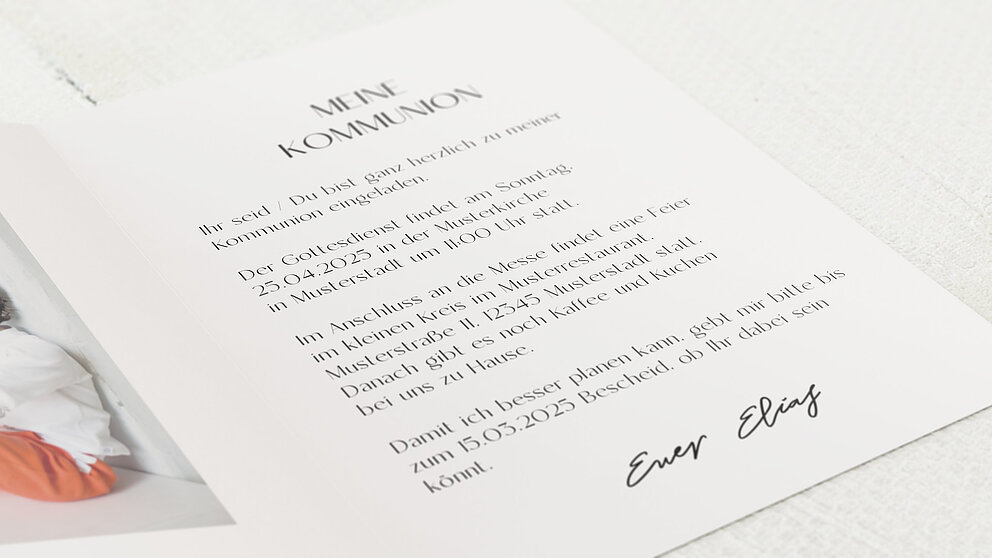 MEINE
KOMMUNION
Ihr seid / Du bist ganz herzlich zu meiner
Kommunion eingeladen.
Der Gottesdienst findet am Sonntag,
25.04.2025 in der Musterkirche
in Musterstadt um 11:00 Uhr statt.
Im Anschluss an die Messe findet eine Feier
im kleinen Kreis im Musterrestaurant,
Musterstraße 11, 12345 Musterstadt statt.
Danach gibt es noch Kaffee und Kuchen
bei uns zu Hause.
Damit ich besser planen kann, gebt mir bitte bis
zum 15.03.2025 Bescheid, ob Ihr dabei sein
könnt.
Euer Elias